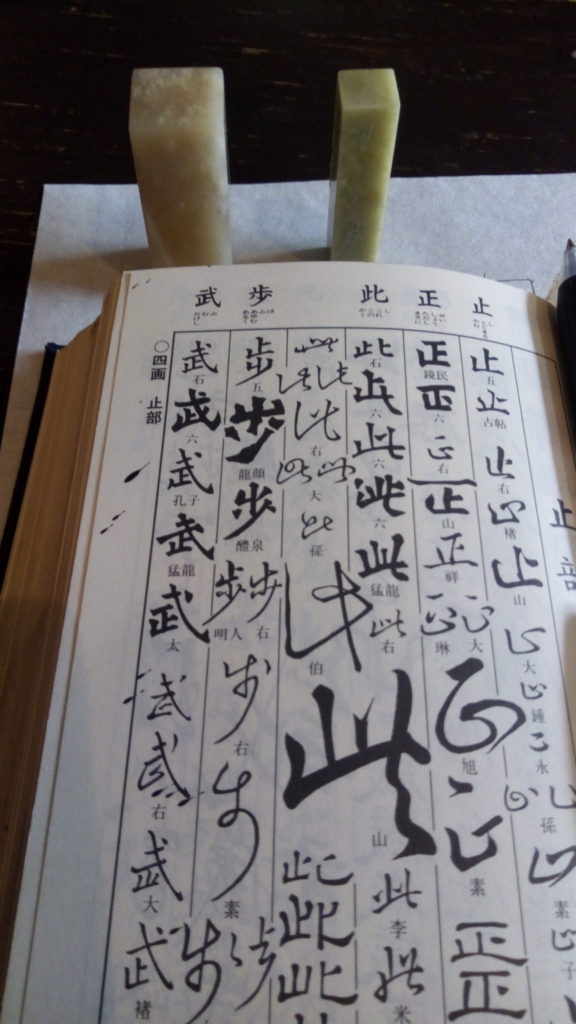 止部
止 正 此 歩 武
止 五 止 古帖 止 右 止 褚 止 山 止 大 止 鍾 止 永 止 止 孫 止 素 止 子
正 鏡民 正 六 正 右 正 山 正 祥 正 大 正 琳 正 旭 正 素 正 正
此 石 此 六 此 六 此 六 此 猛龍 此 右 此 山 此 李 此 米
此 此 此 此 右 此 此 大 此 孫 此 伯 此 此 此
歩 五 歩 龍顔 歩 醴泉 歩 右 歩 明人 歩 右 歩 素 歩 歩
武 石 武 六 武 孔子 武 猛龍 武 太 武 武 右 武 大 武 褚
〇四画 止部